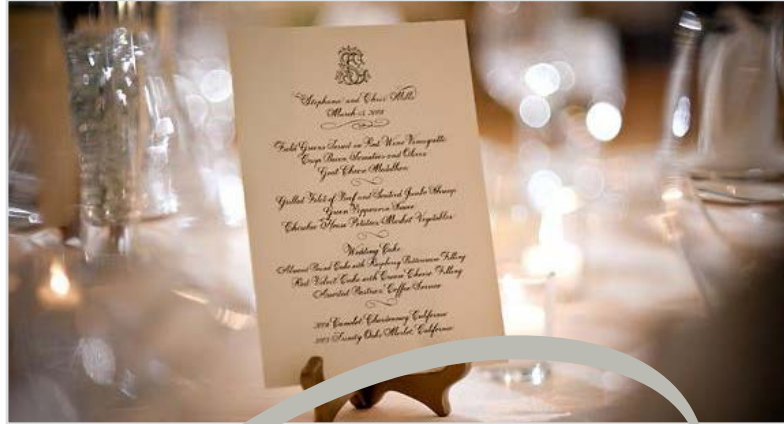 Stephanie and Chris Mills
March 15, 2008
Field Greens Served in Red Wine Vinaigrette
Crisp Bacon Tomatoes and Olives
Goat Cheese Medallion
Grilled Filet of Beef and Jumbo Shrimp
Green Peppercorn Sauce
Cherokee House Potatoes Market Vegetables
Wedding Cake
Almond Pound Cake with Raspberry Buttercream Filling
Red Velvet Cake with Cream Cheese Filling
Assorted Pastries Coffee Service
Camelot Chardonnay California
Trinity Oaks Merlot, California